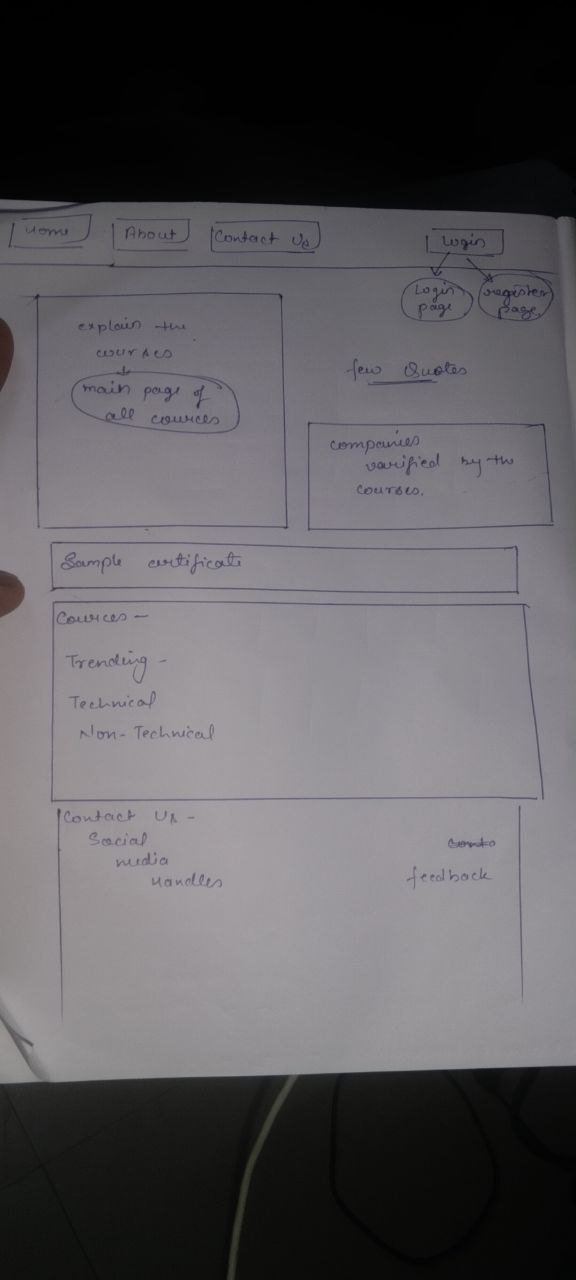 Home
About
Contact Us
Login
Login
page
register
page
explain the
courses
main page of
all cources
few Quotes
companies
varified by the
courses.
Sample certificate
Cources -
Trending -
Technical
Non-Technical
Contact Us -
Social
media
Handles
feedback